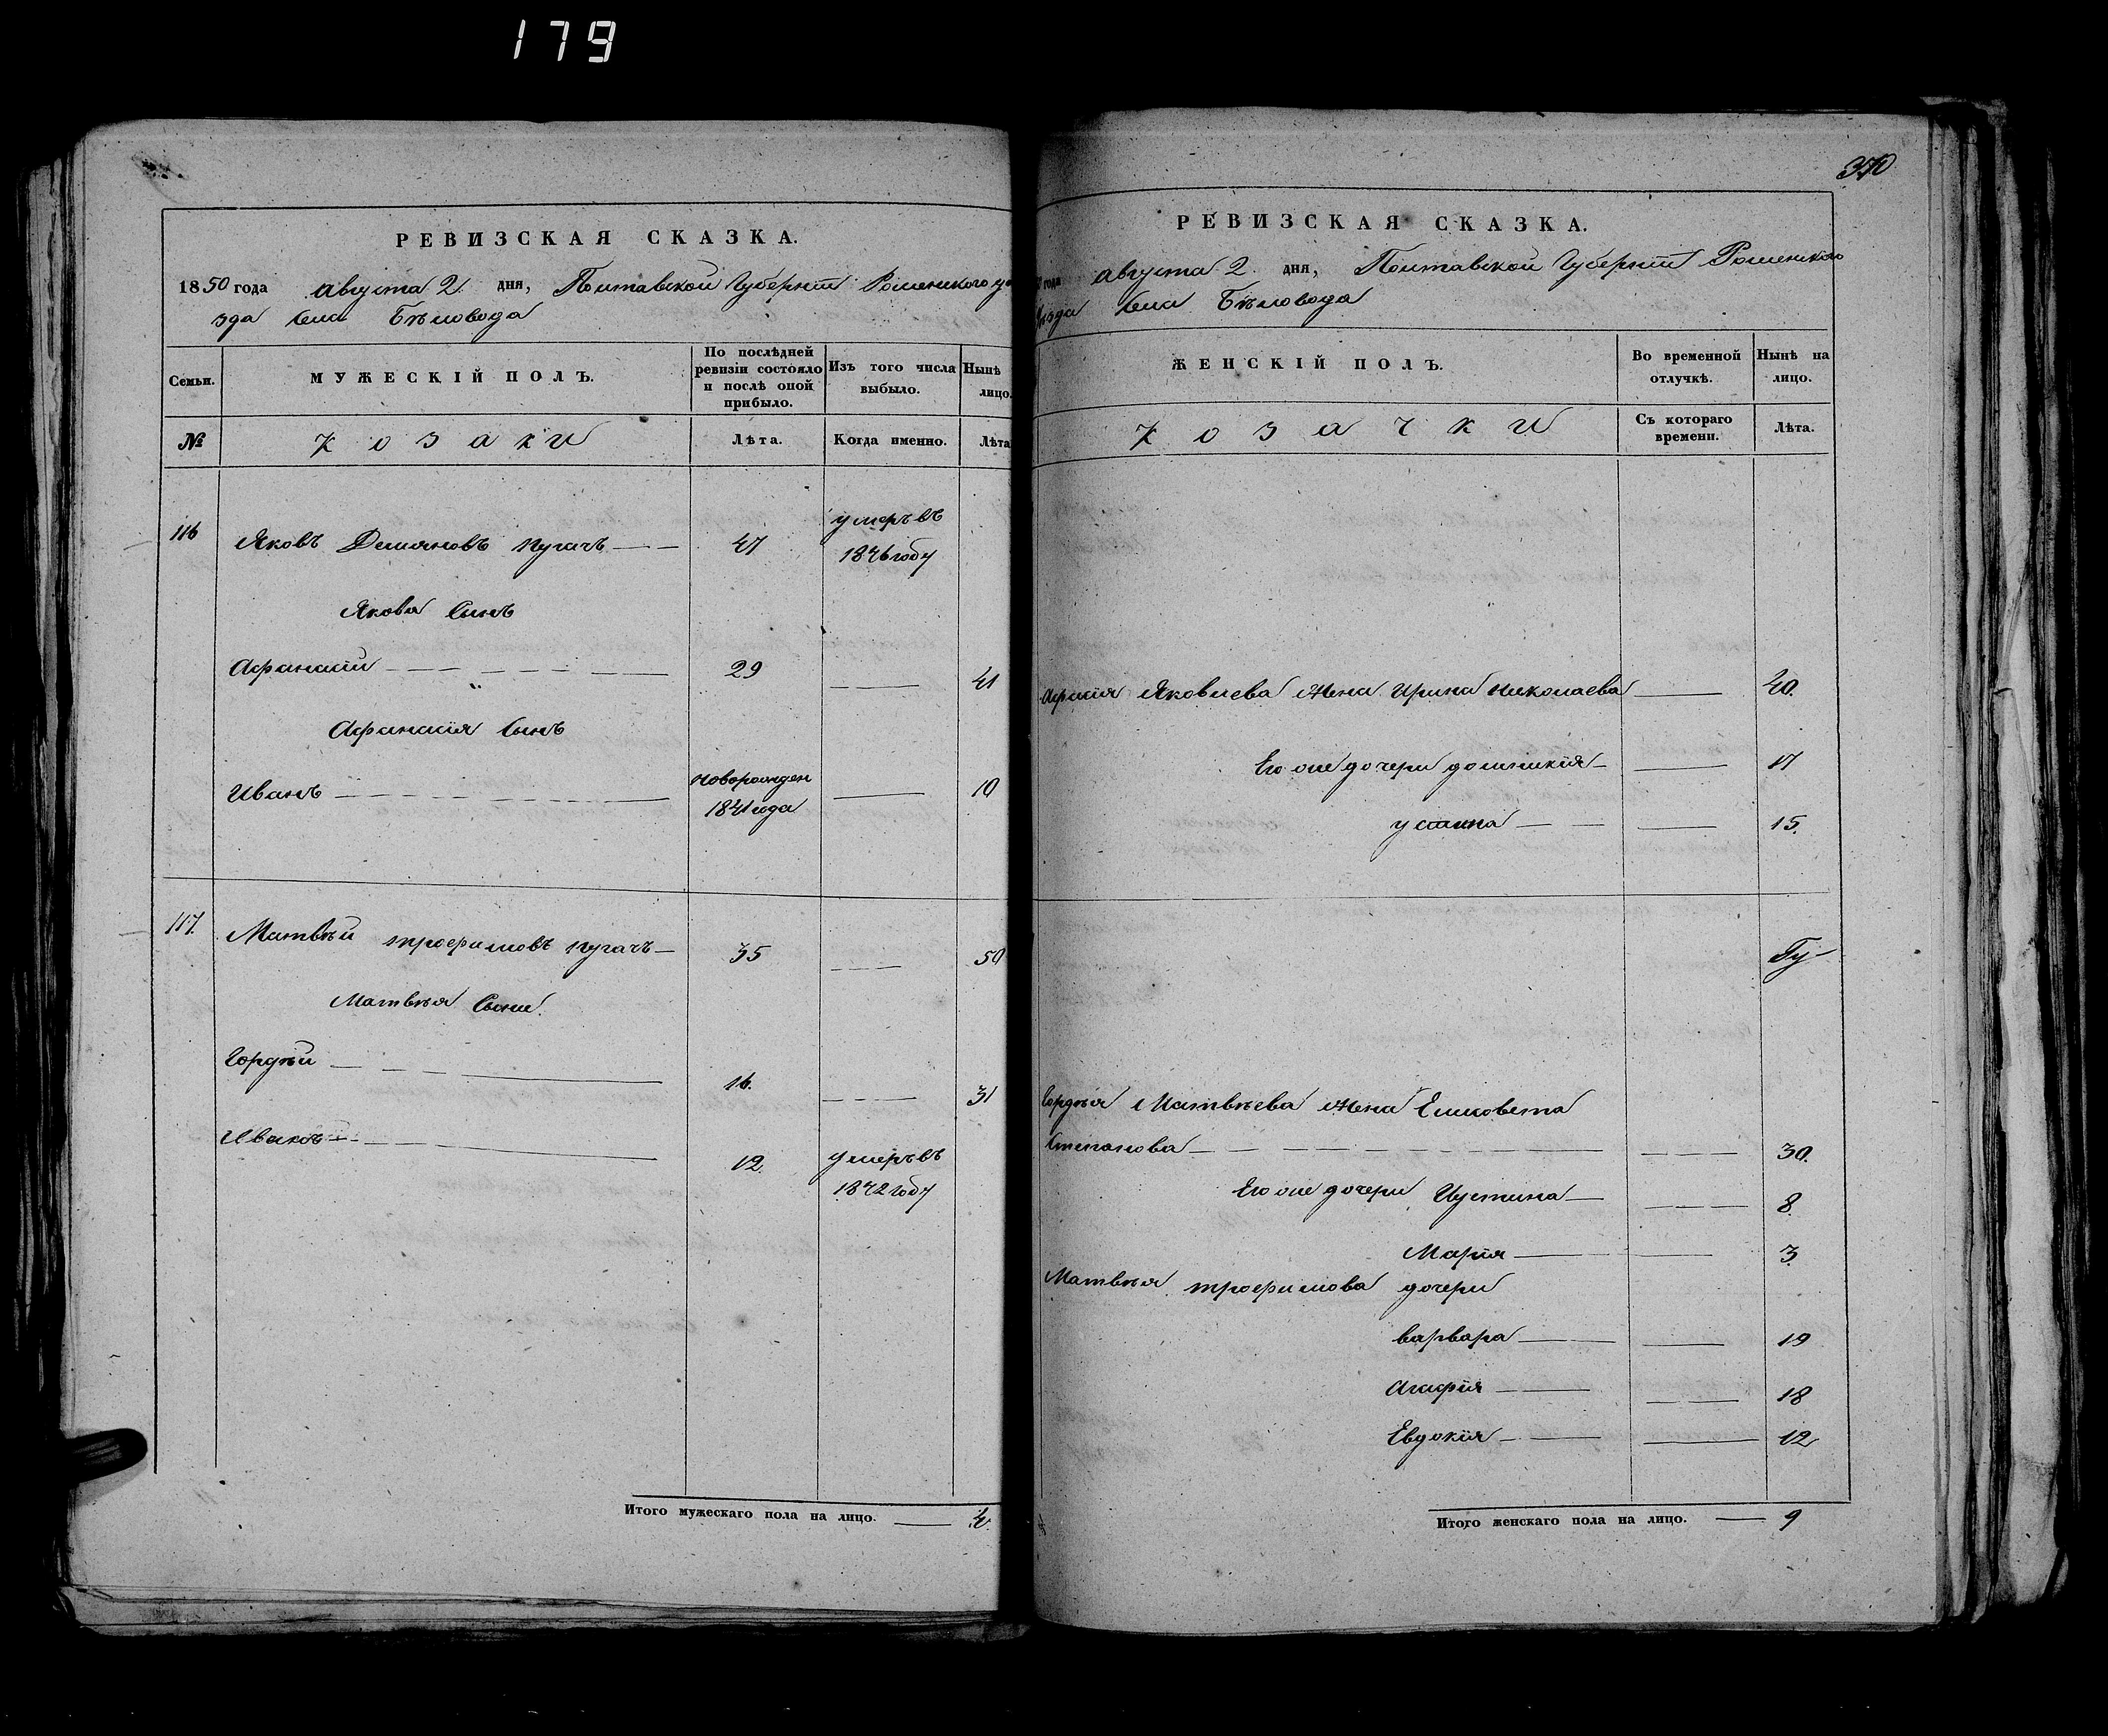 179
РЕВИЗСКАЯ СКАЗКА.
1850 года августа 2. дня, Полтавской Губерніи Роменского уѣ
зда села Бѣловода
Семьи.
МУЖЕСКІЙ ПОЛЪ.
По послѣдней
ревизіи состояло
и послѣ оной
прибыло.
Изъ того числа
выбыло.
Нынѣ
лицо.
№
Козаки
Лѣта.
Когда именно.
Лѣта
116
Яковъ Демяновъ пугачъ
47
умеръ въ
1846 году
Якова Сынъ
Афанасій
29
41
Афанасія Сынъ
Иванъ
новорожден
1841 года
10
117.
Матвѣй трофимовъ пугачъ
35
50
Матвѣя Сыны.
Гордѣй
16.
31
Иванъ
12.
умеръ въ
1842 году
Итого мужескаго пола на лицо.
4.
370
РЕВИЗСКАЯ СКАЗКА.
года августа 2. дня, Полтавской Губерніи Роменского
уѣзда села Бѣловода
ЖЕНСКІЙ ПОЛЪ.
Во временной
отлучкѣ.
Нынѣ на
лицо.
Козачки
Съ котораго
времени.
Лѣта.
Яковлева Жена Ирина николаева
40.
Его же дочери домникія
17
устина
15.
Гу
Гордѣя Матвѣева Жена Елисовета
Степанова
30.
Его же дочери Иустина
8.
Марія
3.
Матвѣя трофимова дочери
варвара
19
Агафія
18
Евдокія
12
Итого женскаго пола на лицо.
9